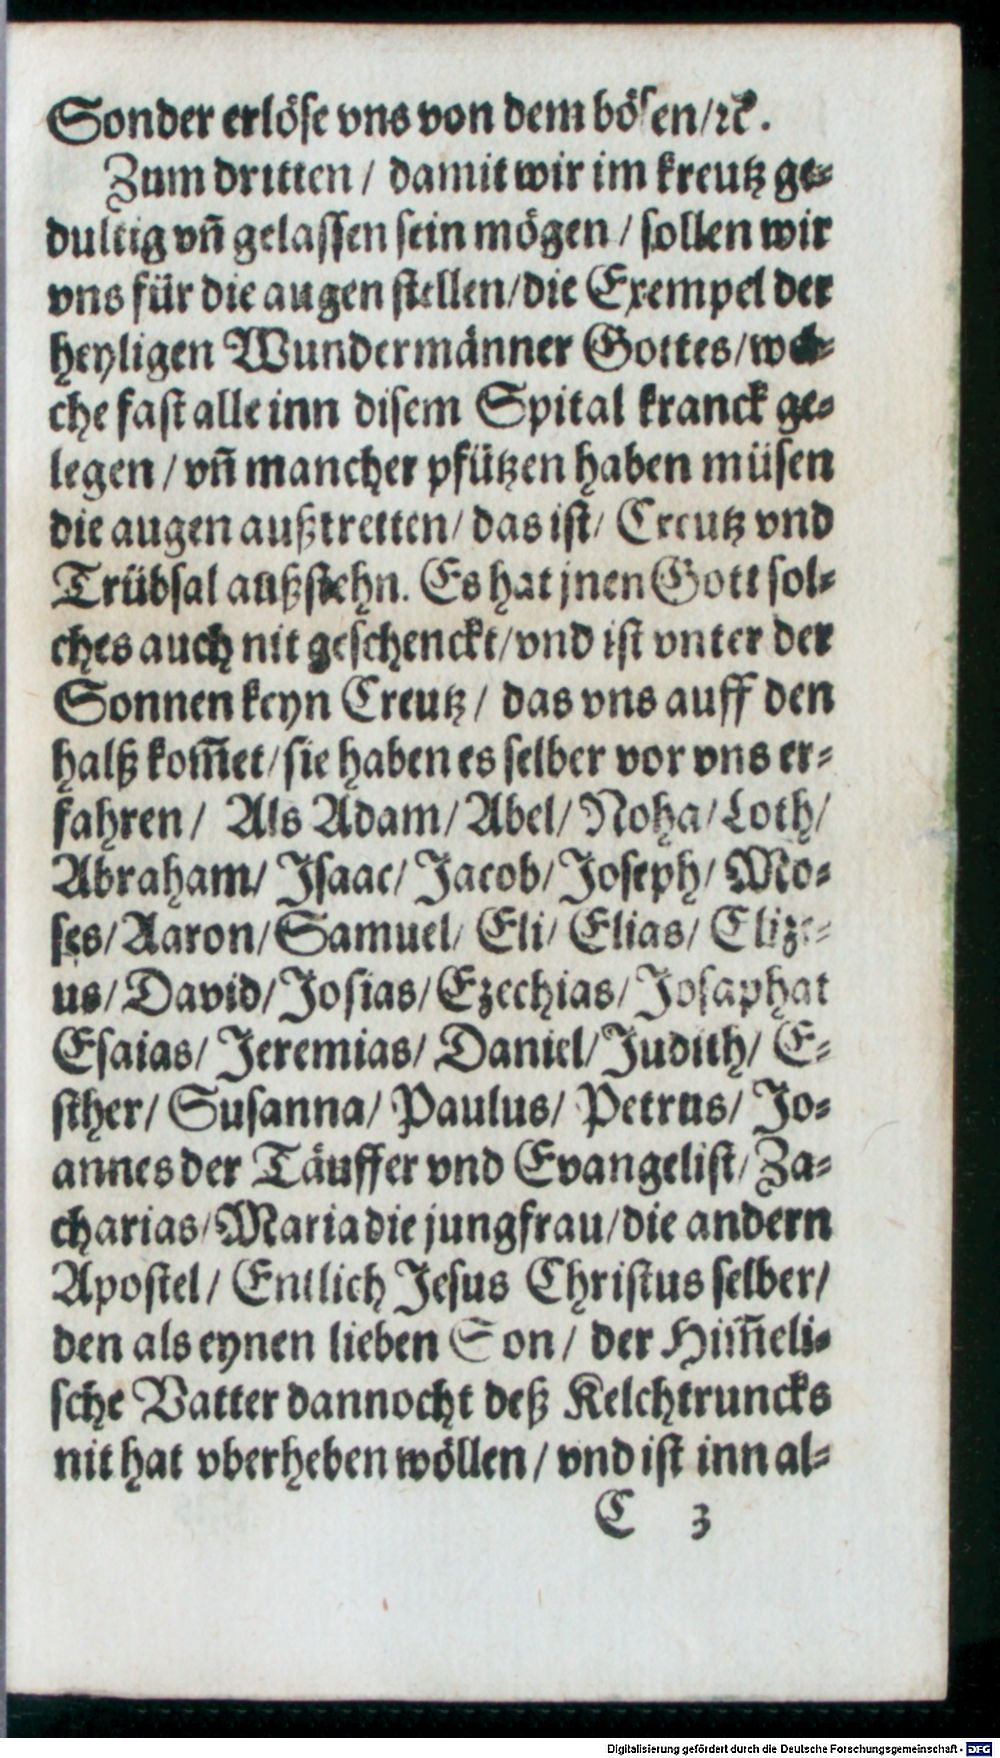 Sonder erlöse vns von dem bösen/ꝛc̃.
Zum dritten / damit wir im kreutz ge-
dultig vñ gelassen sein mögen / sollen wir
vns für die augen stellen/die Exempel der
heyligen Wundermänner Gottes/wel-
che fast alle inn disem Spital kranck ge-
legen / vñ mancher pfützen haben müsen
die augen außtretten/ das ist/ Creutz vnd
Trübsal außstehn. Es hat jnen Gott sol-
ches auch nit geschenckt/vnd ist vnter der
Sonnen keyn Creutz / das vns auff den
halß kom̃et/sie haben es selber vor vns er-
fahren / Als Adam/ Abel/ Noha/Loth/
Abraham/ Isaac/ Jacob/Joseph/ Mo-
ses/Aaron/Samuel/ Eli/ Elias/ Elize-
us/David/Josias/Ezechias/Josaphat
Esaias/ Jeremias/ Daniel/Judith/ E-
sther/ Susanna/ Paulus/ Petrus/ Jo-
annes der Täuffer vnd Evangelist/ Za-
charias/Maria die jungfrau/die andern
Apostel/ Entlich Jesus Christus selber/
den als eynen lieben Son / der Him̃eli-
sche Vatter dannocht deß Kelchtruncks
nit hat vberheben wöllen / vnd ist inn al-
C 3
Digitalisierung gefördert durch die Deutsche Forschungsgemeinschaft - DFG